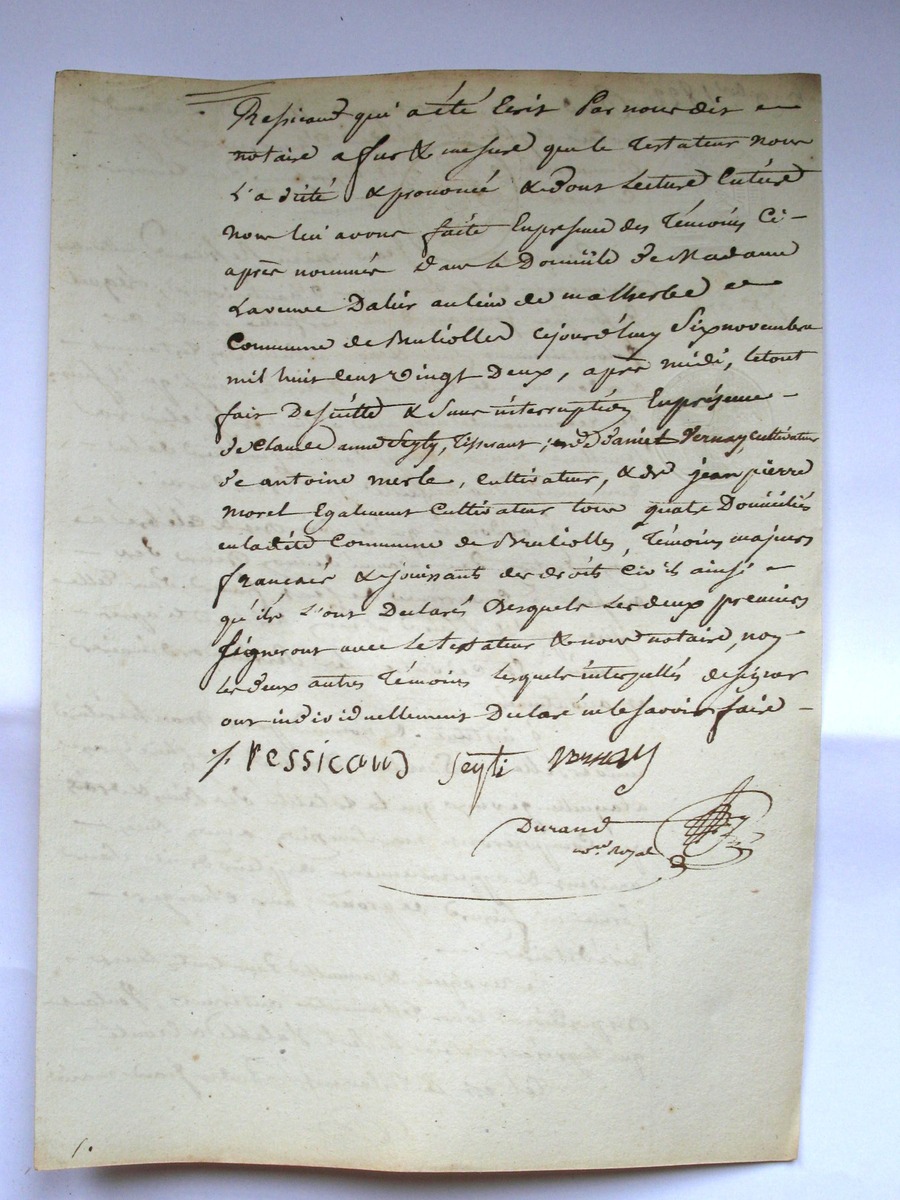 Pessicaud qui a été Ecrit Par nous dit
notaire a fur & mesure que le Testateur nous
l'a dicté & prononcé & dont Lecture Entiere
nous lui avons faite En presence des Témoins Ci-
après nommés dans le Domicile de Madame
La veuve au lieu de malherbe
Commune de Brulliolles cejourd'huy Six novembre
mil huit Cent vingt Deux, après midi, le tout
fait De suitte & sans interruption En présence
de Claude anne Seyty, Tisserant, de Daniel Vernay, Cultivateur
de antoine merle, Cultivateur, & de jean pierre
morel Egalement Cultivateur tous quatre Domiciliés
en ladite Commune de Brulliolles, Témoins majeurs
francais & jouissants des droits Civils ainsi
qu'ils L'ont Declarés Desquels Les deux premiers
signeront avec Le testateur & nous notaire, non
les deux autres Témoins lesquels interpellés de signer
ont individuellement Declaré ne le savoir faire -
pessicaud Seyti vernay
Durand
nore royal